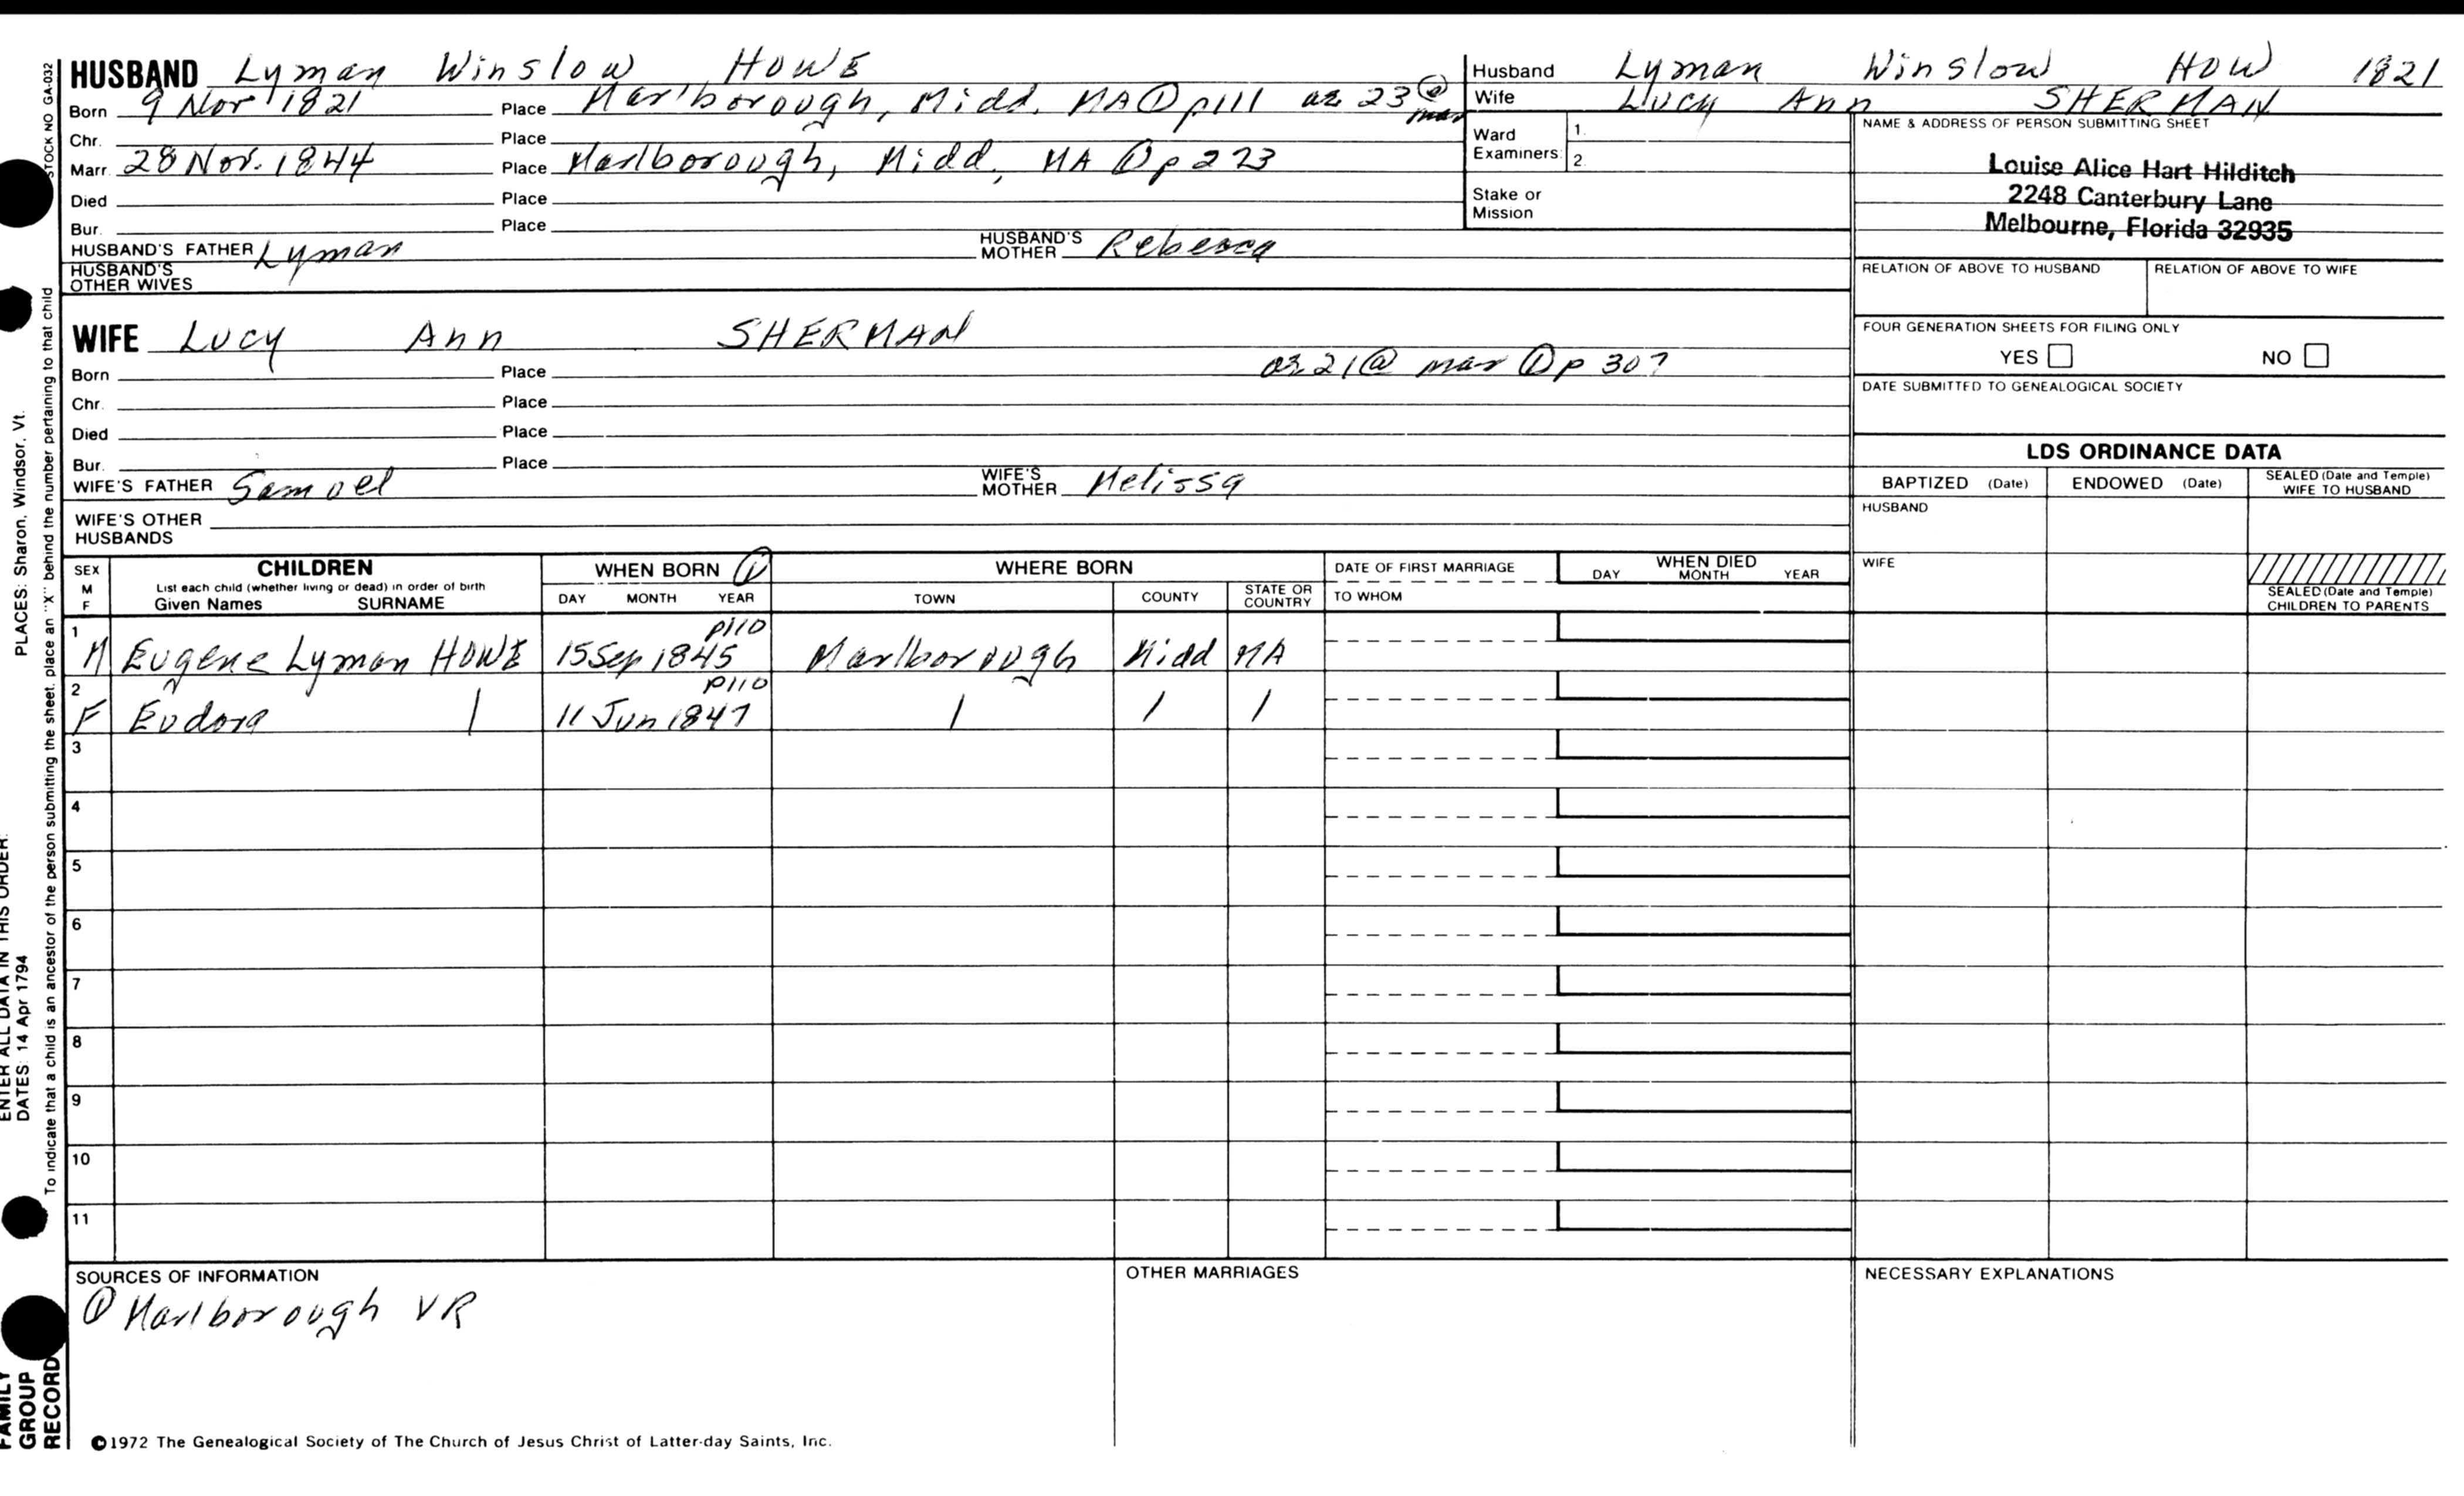 HUSBAND Lyman Winslow HOWE
Born 9 Nov 1821 Place Marlborough, Midd, MA ① p111 ae 23 @ mar
Chr. Place
Marr. 28 Nov. 1844 Place Marlborough, Midd, MA ① p 223
Died Place
Bur. Place
HUSBAND'S FATHER Lyman HUSBAND'S MOTHER Rebecca
HUSBAND'S OTHER WIVES
Husband Lyman Winslow HOW 1821
Wife Lucy Ann SHERMAN
Ward Examiners: 1.
2.
Stake or Mission
NAME & ADDRESS OF PERSON SUBMITTING SHEET
Louise Alice Hart Hilditch
2248 Canterbury Lane
Melbourne, Florida 32935
RELATION OF ABOVE TO HUSBAND RELATION OF ABOVE TO WIFE
FOUR GENERATION SHEETS FOR FILING ONLY
YES NO
DATE SUBMITTED TO GENEALOGICAL SOCIETY
WIFE Lucy Ann SHERMAN
Born Place ae 21 @ mar ① p 307
Chr. Place
Died Place
Bur. Place
WIFE'S FATHER Samuel WIFE'S MOTHER Melissa
WIFE'S OTHER HUSBANDS
LDS ORDINANCE DATA
BAPTIZED (Date) ENDOWED (Date) SEALED (Date and Temple) WIFE TO HUSBAND
HUSBAND
WIFE
SEALED (Date and Temple) CHILDREN TO PARENTS
SEX M F
CHILDREN
List each child (whether living or dead) in order of birth
Given Names SURNAME
WHEN BORN ①
DAY MONTH YEAR
WHERE BORN
TOWN COUNTY STATE OR COUNTRY
DATE OF FIRST MARRIAGE
TO WHOM
WHEN DIED
DAY MONTH YEAR
p110
1 M Eugene Lyman HOWE 15 Sep 1845 Marlborough Midd MA
p110
2 F Eudora | 11 Jun 1847 | | |
3
4
5
6
7
8
9
10
11
SOURCES OF INFORMATION
① Marlborough VR
OTHER MARRIAGES
NECESSARY EXPLANATIONS
©1972 The Genealogical Society of The Church of Jesus Christ of Latter-day Saints, Inc.
STOCK NO GA-032
To indicate that a child is an ancestor of the person submitting the sheet, place an "X" behind the number pertaining to that child
PLACES: Sharon, Windsor, Vt.
ENTER ALL DATA IN THIS ORDER:
DATES: 14 Apr 1794
FAMILY
GROUP
RECORD